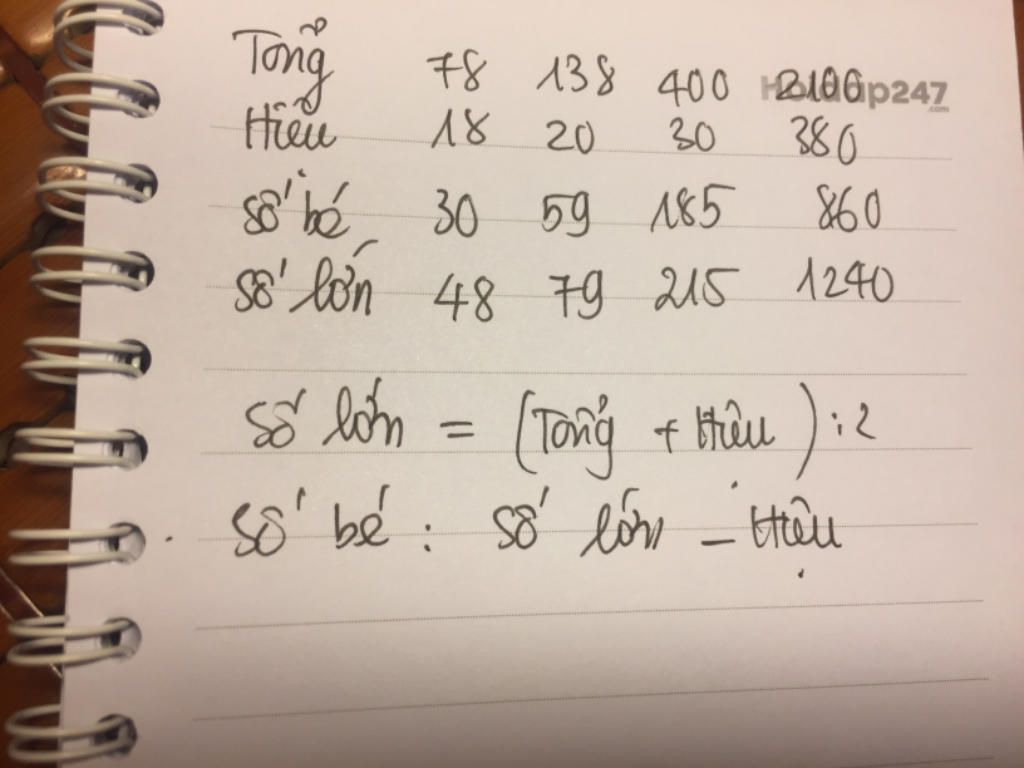 Tổng 78 138 400 2100
Hiệu 18 20 30 380
Số bé 30 59 185 860
Số lớn 48 79 215 1240
Số lớn = (Tổng + Hiệu) : 2
Số bé : Số lớn - Hiệu
Hoidap247
.com